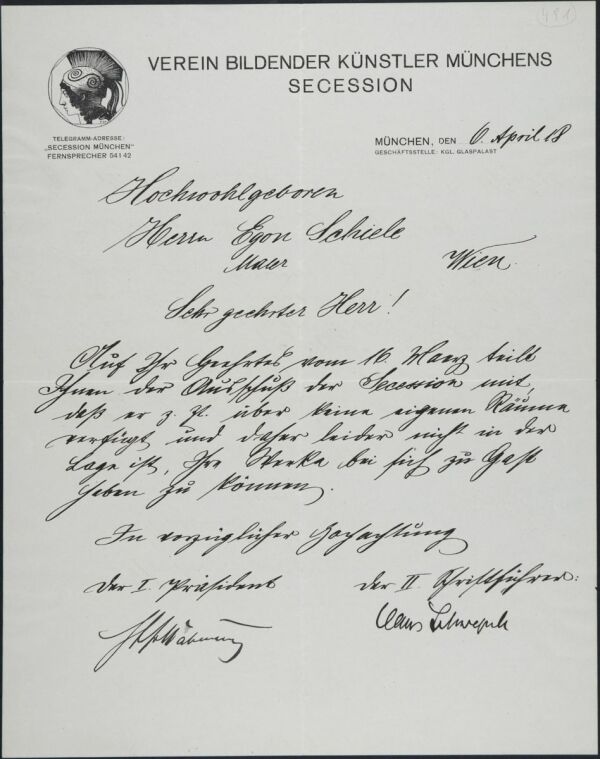 491
VEREIN BILDENDER KÜNSTLER MÜNCHENS
SECESSION
TELEGRAMM-ADRESSE:
„SECESSION MÜNCHEN"
FERNSPRECHER 54142
MÜNCHEN, DEN 6. April 18
GESCHÄFTSSTELLE: KGL. GLASPALAST
Hochwohlgeboren
Herrn Egon Schiele
Maler Wien.
Sehr geehrter Herr!
Auf Ihr Geehrtes vom 16. Maerz teilt
Ihnen der Ausschuß der Secession mit,
daß er z. Zt. über keine eigenen Räume
verfügt und daher leider nicht in der
Lage ist, Ihre Werke bei sich zu Gast
haben zu können.
In vorzüglicher Hochachtung
Der I. Präsident der II Schriftführer:
Hans